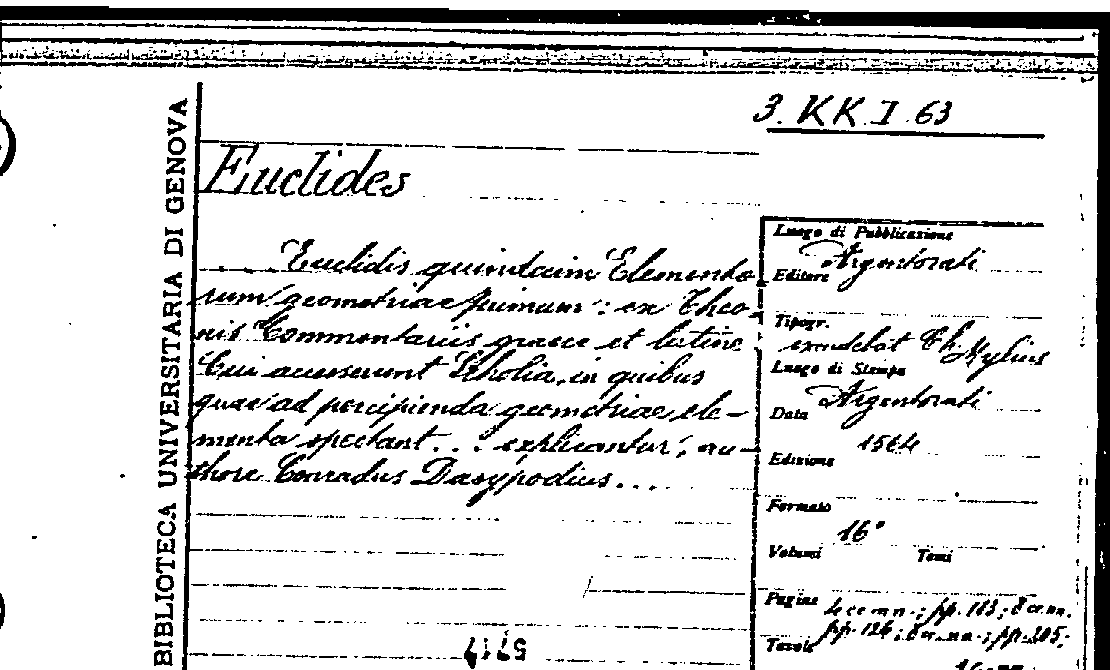 3. KK I. 63
BIBLIOTECA UNIVERSITARIA DI GENOVA
Euclides
Euclidis quindecim Elemento-
rum geometriae primum: ex Theo-
nis Commentariis graece et latine
Cui accesserunt Scholia, in quibus
quae ad percipienda geometriae ele-
menta spectant . . . explicantur, au-
thore Conradus Dasypodius . . .
Luogo di Pubblicazione
Argentorati
Editore
Tipogr.
excudebat Ch. Mylius
Luogo di Stampa
Argentorati
Data
1564
Edizione
Formato
16°
Volumi Tomi
Pagine
pp. 113; 8 cc. nn.
pp. 126; 8 cc. nn.; pp. 205.
Tavole